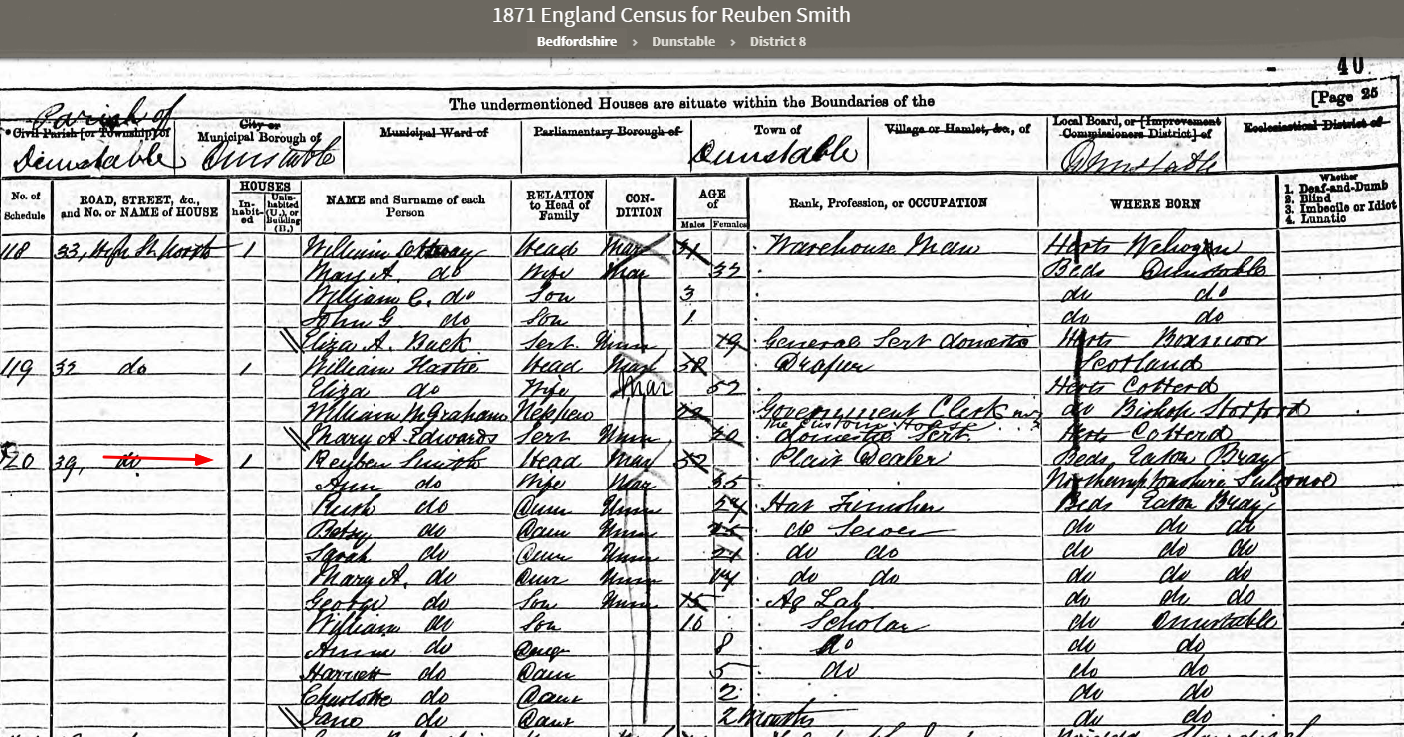 1871 England Census for Reuben Smith
Bedfordshire > Dunstable > District 8
40
[Page 25
The undermentioned Houses are situate within the Boundaries of the
Parish of
Civil Parish [or Township] of
City or
Municipal Borough of
Municipal Ward of
Parliamentary Borough of
Town of
Village or Hamlet, &c., of
Local Board, or [Improvement
Commissioners District] of
Ecclesiastical District of
Dunstable Dunstable Dunstable Dunstable
No. of Schedule
ROAD, STREET, &c., and No. or NAME of HOUSE
HOUSES
In-habit-ed
Unin-habited (U.), or Building (B.)
NAME and Surname of each Person
RELATION to Head of Family
CON-DITION
AGE of
Males Females
Rank, Profession, or OCCUPATION
WHERE BORN
Whether
1. Deaf-and-Dumb
2. Blind
3. Imbecile or Idiot
4. Lunatic
118 33, High St North 1 William Head Mar 31 Warehouse Man Herts
Mary A. do Wife Mar Beds Dunstable
William C. do Son 3 do do
John G do Son 1 do do
Eliza A. Buck Sert Unm 19 General Sert domestic Herts Boxmoor
119 do 1 William Hastie Head Mar Draper Scotland
Eliza do Wife Mar 52 Herts Cotterd
William McGraham Nephew Government Clerk do Bishop Stotford
The Custom House
Mary A. Edwards Sert Unm 20 domestic Sert Herts Cotterd
120 39, do 1 Reuben Smith Head Mar 52 Plait Dealer Beds Eaton Bray
Ann do Wife Mar Northamptonshire
Ruth do Daur Unm Hat Finisher Beds Eaton Bray
Betsy do Daur Unm 25 do Sewer do do do
Sarah do Daur Unm 21 do do do do do
Mary A. do Daur Unm do do do do do
George do Son Unm 15 Ag Lab do do do
William do Son 10 Scholar do Dunstable
Annie do Daur 8 do do do
Harriett do Daur 5 do do do
Charlotte do Daur 2 do do
Jane do Daur 2 Months do do